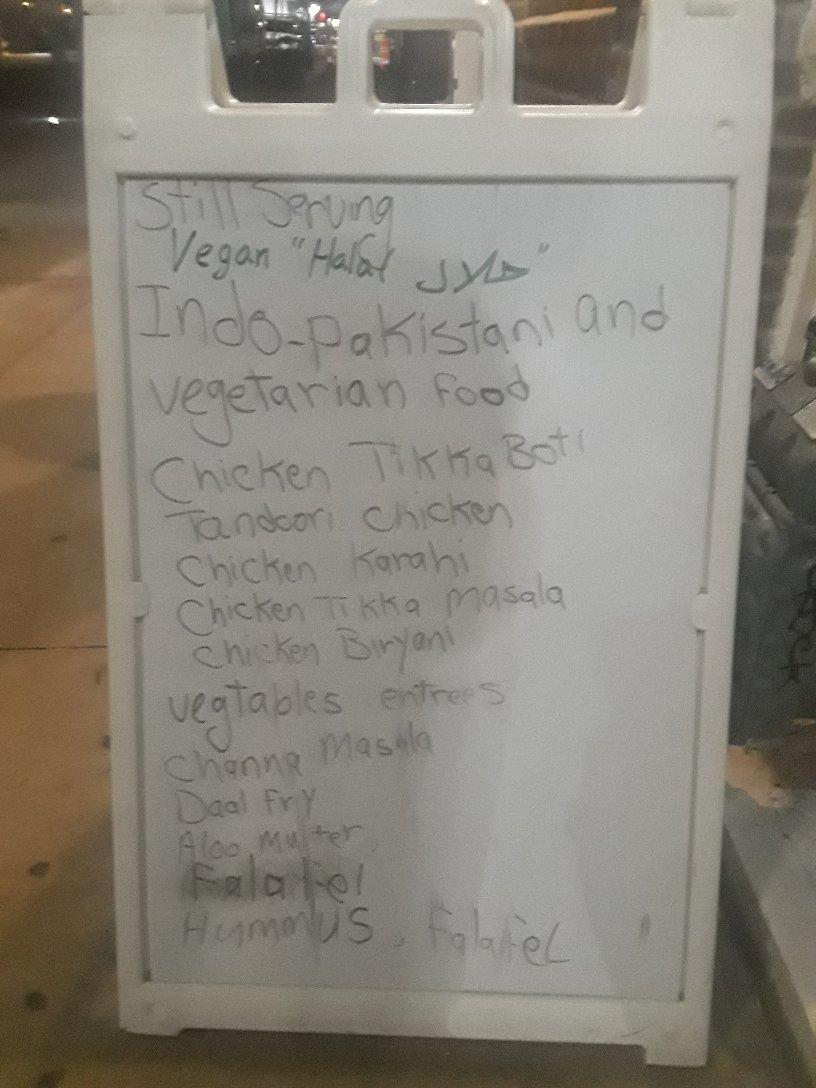 Still Serving
Vegan "Halal حلال"
Indo-Pakistani and
vegetarian Food
Chicken Tikka Boti
Tandoori chicken
Chicken Karahi
Chicken Tikka masala
Chicken Biryani
vegtables entrees
Channa Masala
Daal Fry
Aloo Mutter
Falafel
Hummus, Falafel